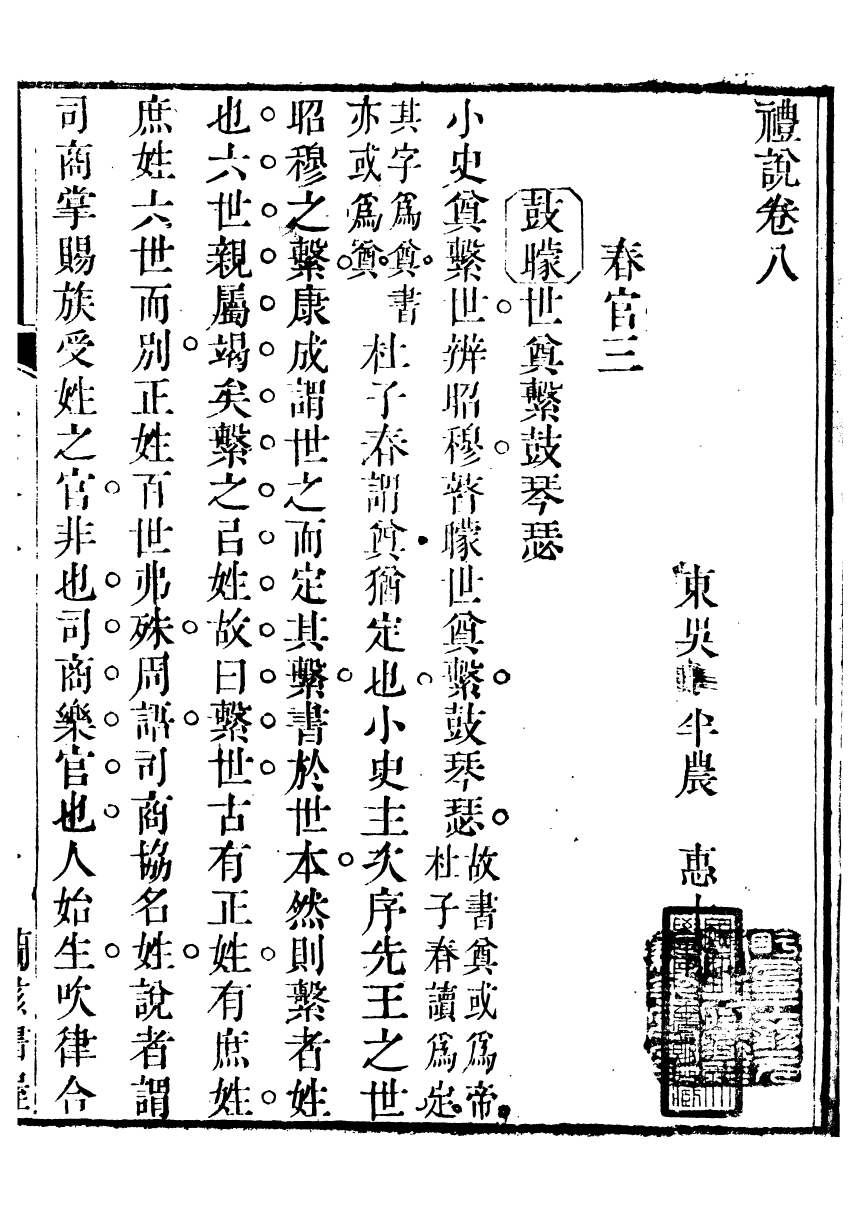 禮說卷八
東吳 半農 惠士
春官三
鼓矇世奠繫鼓琴瑟
小史奠繫世辨昭穆瞽矇世奠繫鼓琴瑟故書奠或爲帝杜子春讀爲定
其字爲奠書亦或爲奠杜子春謂奠猶定也小史主次序先王之世
昭穆之繫康成謂世之而定其繫書於世本然則繫者姓
也六世親屬竭矣繫之㠯姓故曰繫世古有正姓有庶姓
庶姓六世而別正姓百世弗殊周語司商協名姓說者謂
司商掌賜族受姓之官非也司商樂官也人始生吹律合